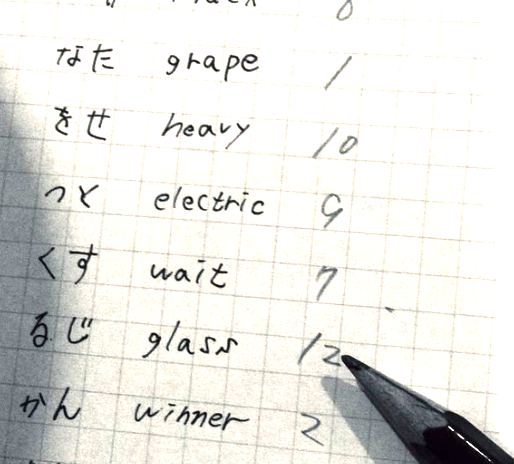 なた grape 1
をせ heavy 10
つと electric 9
くす wait 7
るじ glass 12
かん winner 2